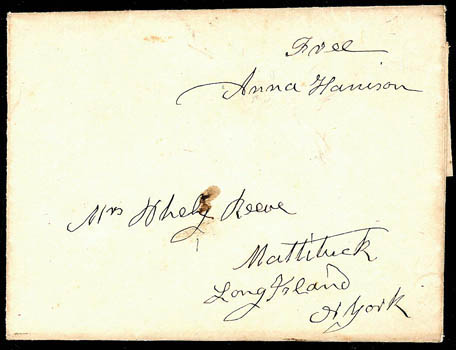 Free
Anna Harrison
Mrs Reeve
Mattituck
Long Island
N York